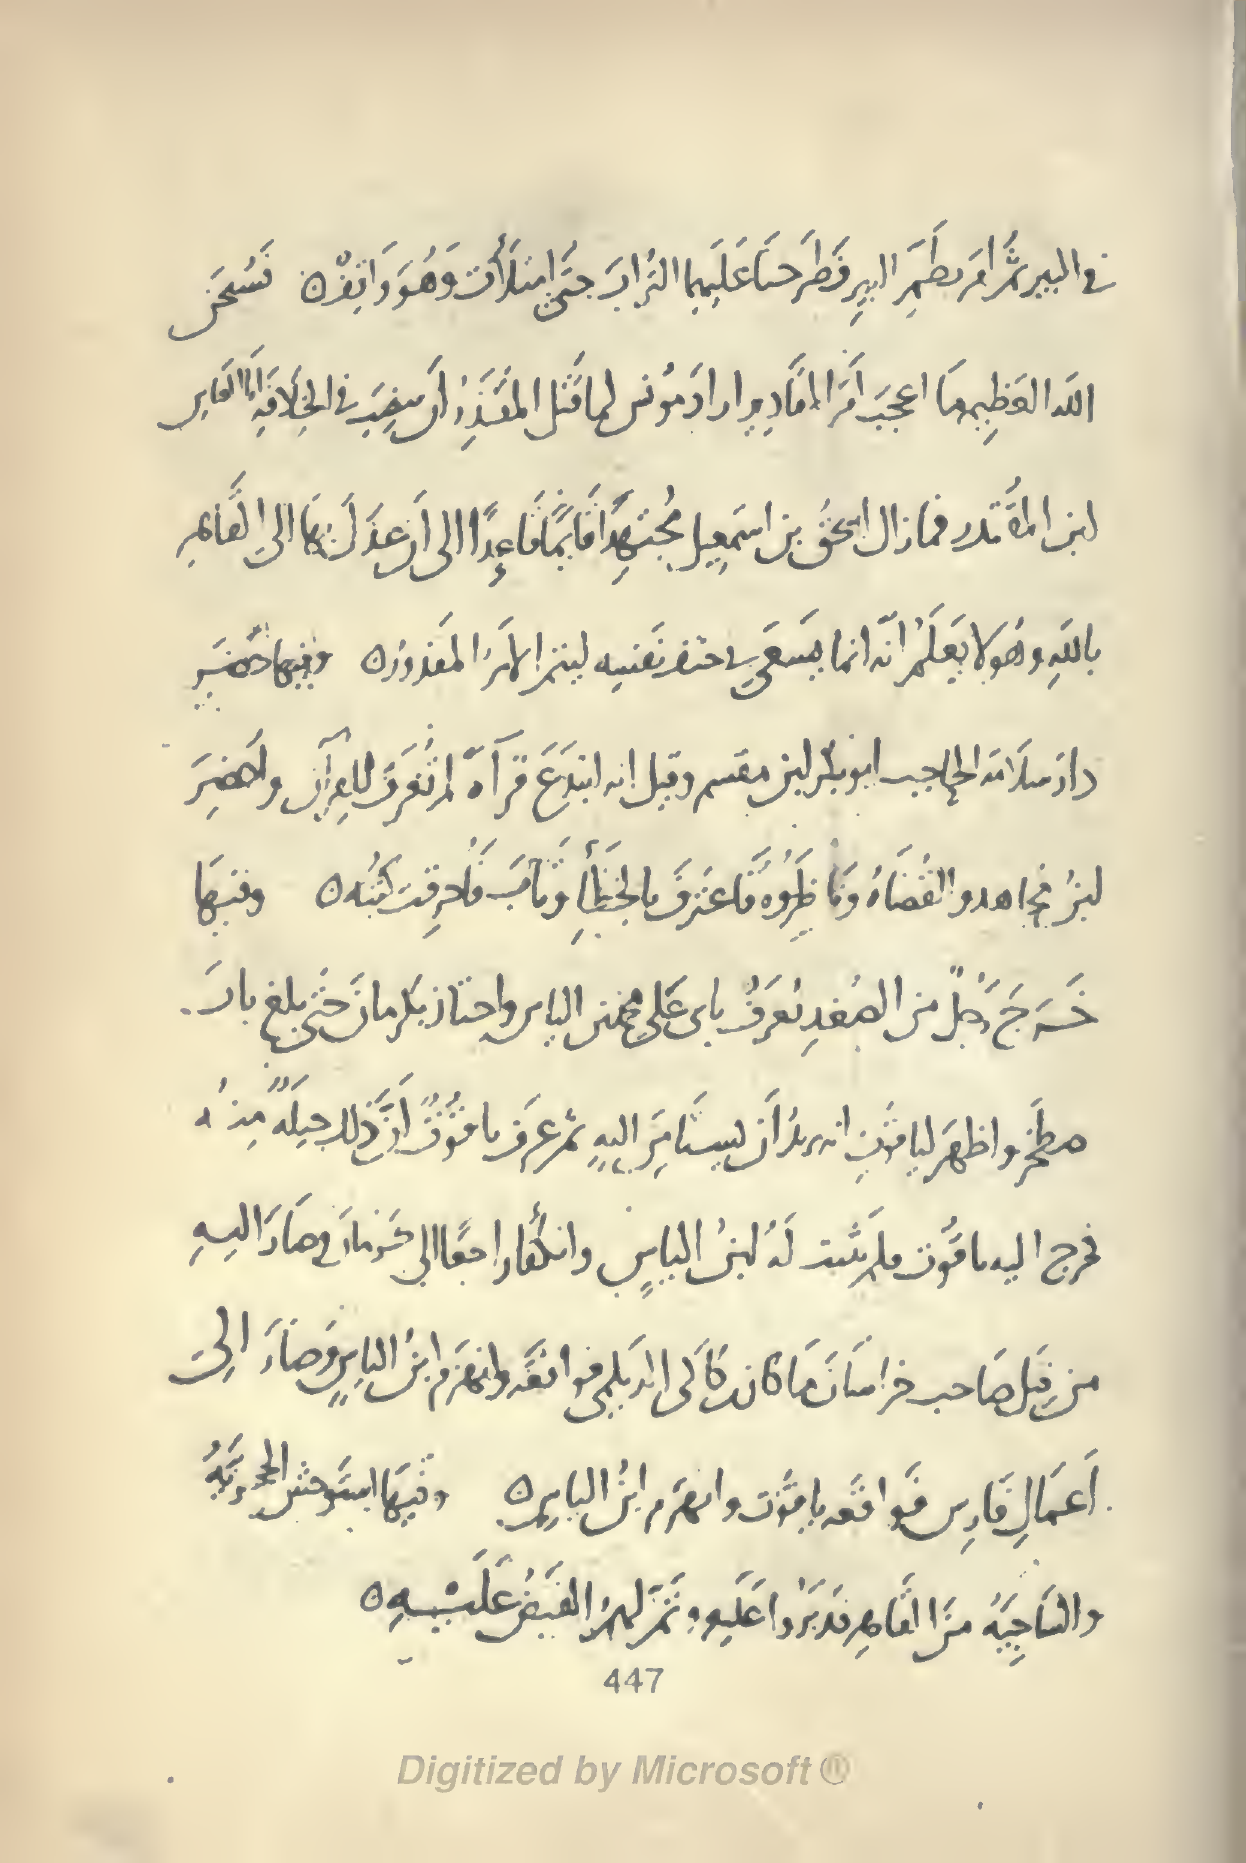 في البير ثُمَّ امَرَ بطَمِّ البيرِ فَطَرَحنَا عَلَيهِما التُرابَ حتىَّ امتلأَت وَهُوَ وَاقِفٌ ه فَسُبحَن
اللَه العَظِيم مَا اعجَبَ أمَرَ المقَادِيرِ ارادَ مُونس لما قَتَل المقتَدِرُ أن ينصِبَ في الخِلَافَهِ ابَا العَباس
ابن المُقتَدر فما زال اسحَقُ بن اسمَعِيل مُجتهِدًا قَايمًا قَاعِدًا الى أن عدَلَ بهَا الى القَاهِر
باللَهِ وهُو لا يَعلَمُ انّه انما يَسعَى في حتف نَفسِه ليتمَّ الامَرُ المقدورُ ه وفيها حَضَر
دارَ سلَامَه الحاجب ابو بكر ابن مقسم وقيل انه ابتَدَعَ قرآهً لم تُعرَف للقرآن واُحضِرَ
ابنُ مجاهد والقُضَاهُ وَنَاظَرُوهُ فَاعترَفَ بالخَطَأِ وتَابَ فَاُحرِقت كتُبُه ه وفيهَا
خَرَجَ رَجُلٌ من الصُغدِ يُعرَفُ بابى عَلى محمد بن الياس واجتاز بكرمانَ حتى بلغ بلادَ
صطَخر واظهَر لياقوتِ انه يريدُ أن يستَامِنَ اليهِ ثم عرَفَ ياقُوتٌ أنَّ ذلك حيلَةٌ مِنهُ
فخرج اليه ياقُوت فلم يَثبت لَهُ ابنُ الياسِ وانكَفَأ راجعًا الى كَرمَان وصَارَ اليهِ
من قِبَل صَاحب خراسَانَ مَاكان بن كَاكَى الديلمي فواقَعَه وانهزَم ابنُ الياسِ وَصَارَ الى
أعمَالِ فَارِس فَواقَعَه ياقُوت وانهزم ابنُ الياس ه وفيهَا استَوحَش الحجريَّهُ
والسَاجِيَهُ منَ القَاهِر فدَبَّرُوا عَلَيهِ وتَمَّ لهمُ القَبضُ عَلَيهِ ه
447
Digitized by Microsoft ®